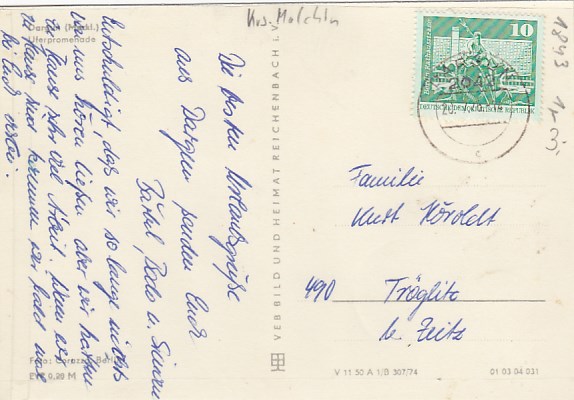 Krs. Malchin
Dargun (Meckl.)
Uferpromenade
Die besten Urlaubsgrüße
aus Dargun senden Euch
Bärbel, Bodo u.
Entschuldigt, daß wir so lange nichts
von uns hören ließen, aber wir hatten
zu Hause sehr viel Arbeit. Wenn wir
zu Haus sind kommen wir bald mal
bei Euch vorbei.
Foto: Corazza, Berlin
EVP 0,20 M
VEB BILD UND HEIMAT REICHENBACH I. V.
10
DEUTSCHE DEMOKRATISCHE REPUBLIK
1843
Familie
Kurt Köroldt
490 Tröglitz
be Zeitz
V 11 50 A 1/B 307/74
01 03 04 031